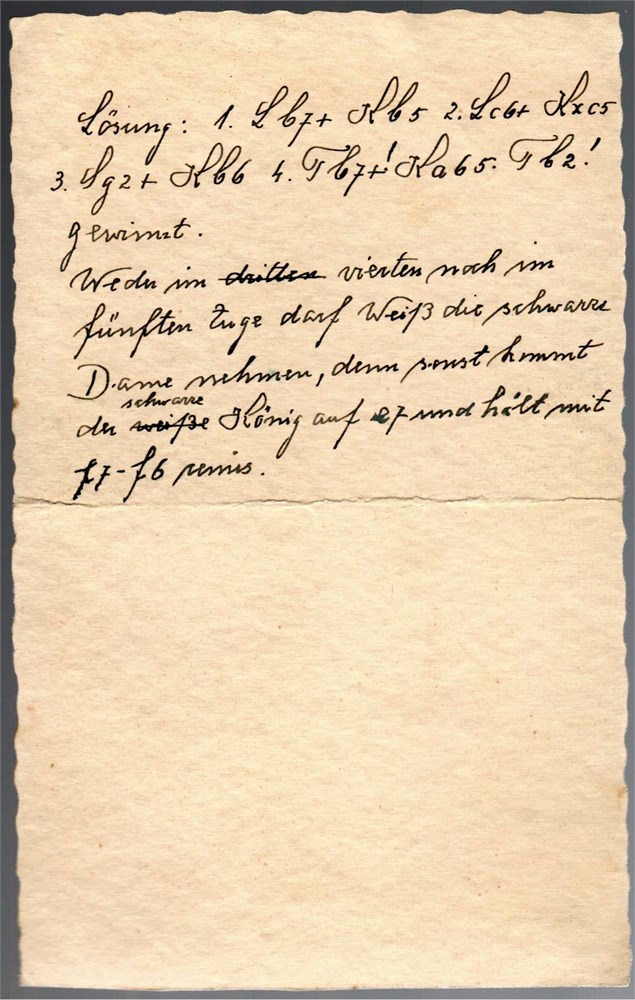 Lösung: 1. Lb7+ Kb5 2. Lc6+ Kxc5
3. Lg2+ Kb6 4. Tb7+! Ka6 5. Tb2!
gewinnt.
Weder im dritten vierten noch im
fünften Zuge darf Weiß die schwarze
Dame nehmen, denn sonst kommt
schwarze
der weiße König auf e7 und hält mit
f7-f6 remis.